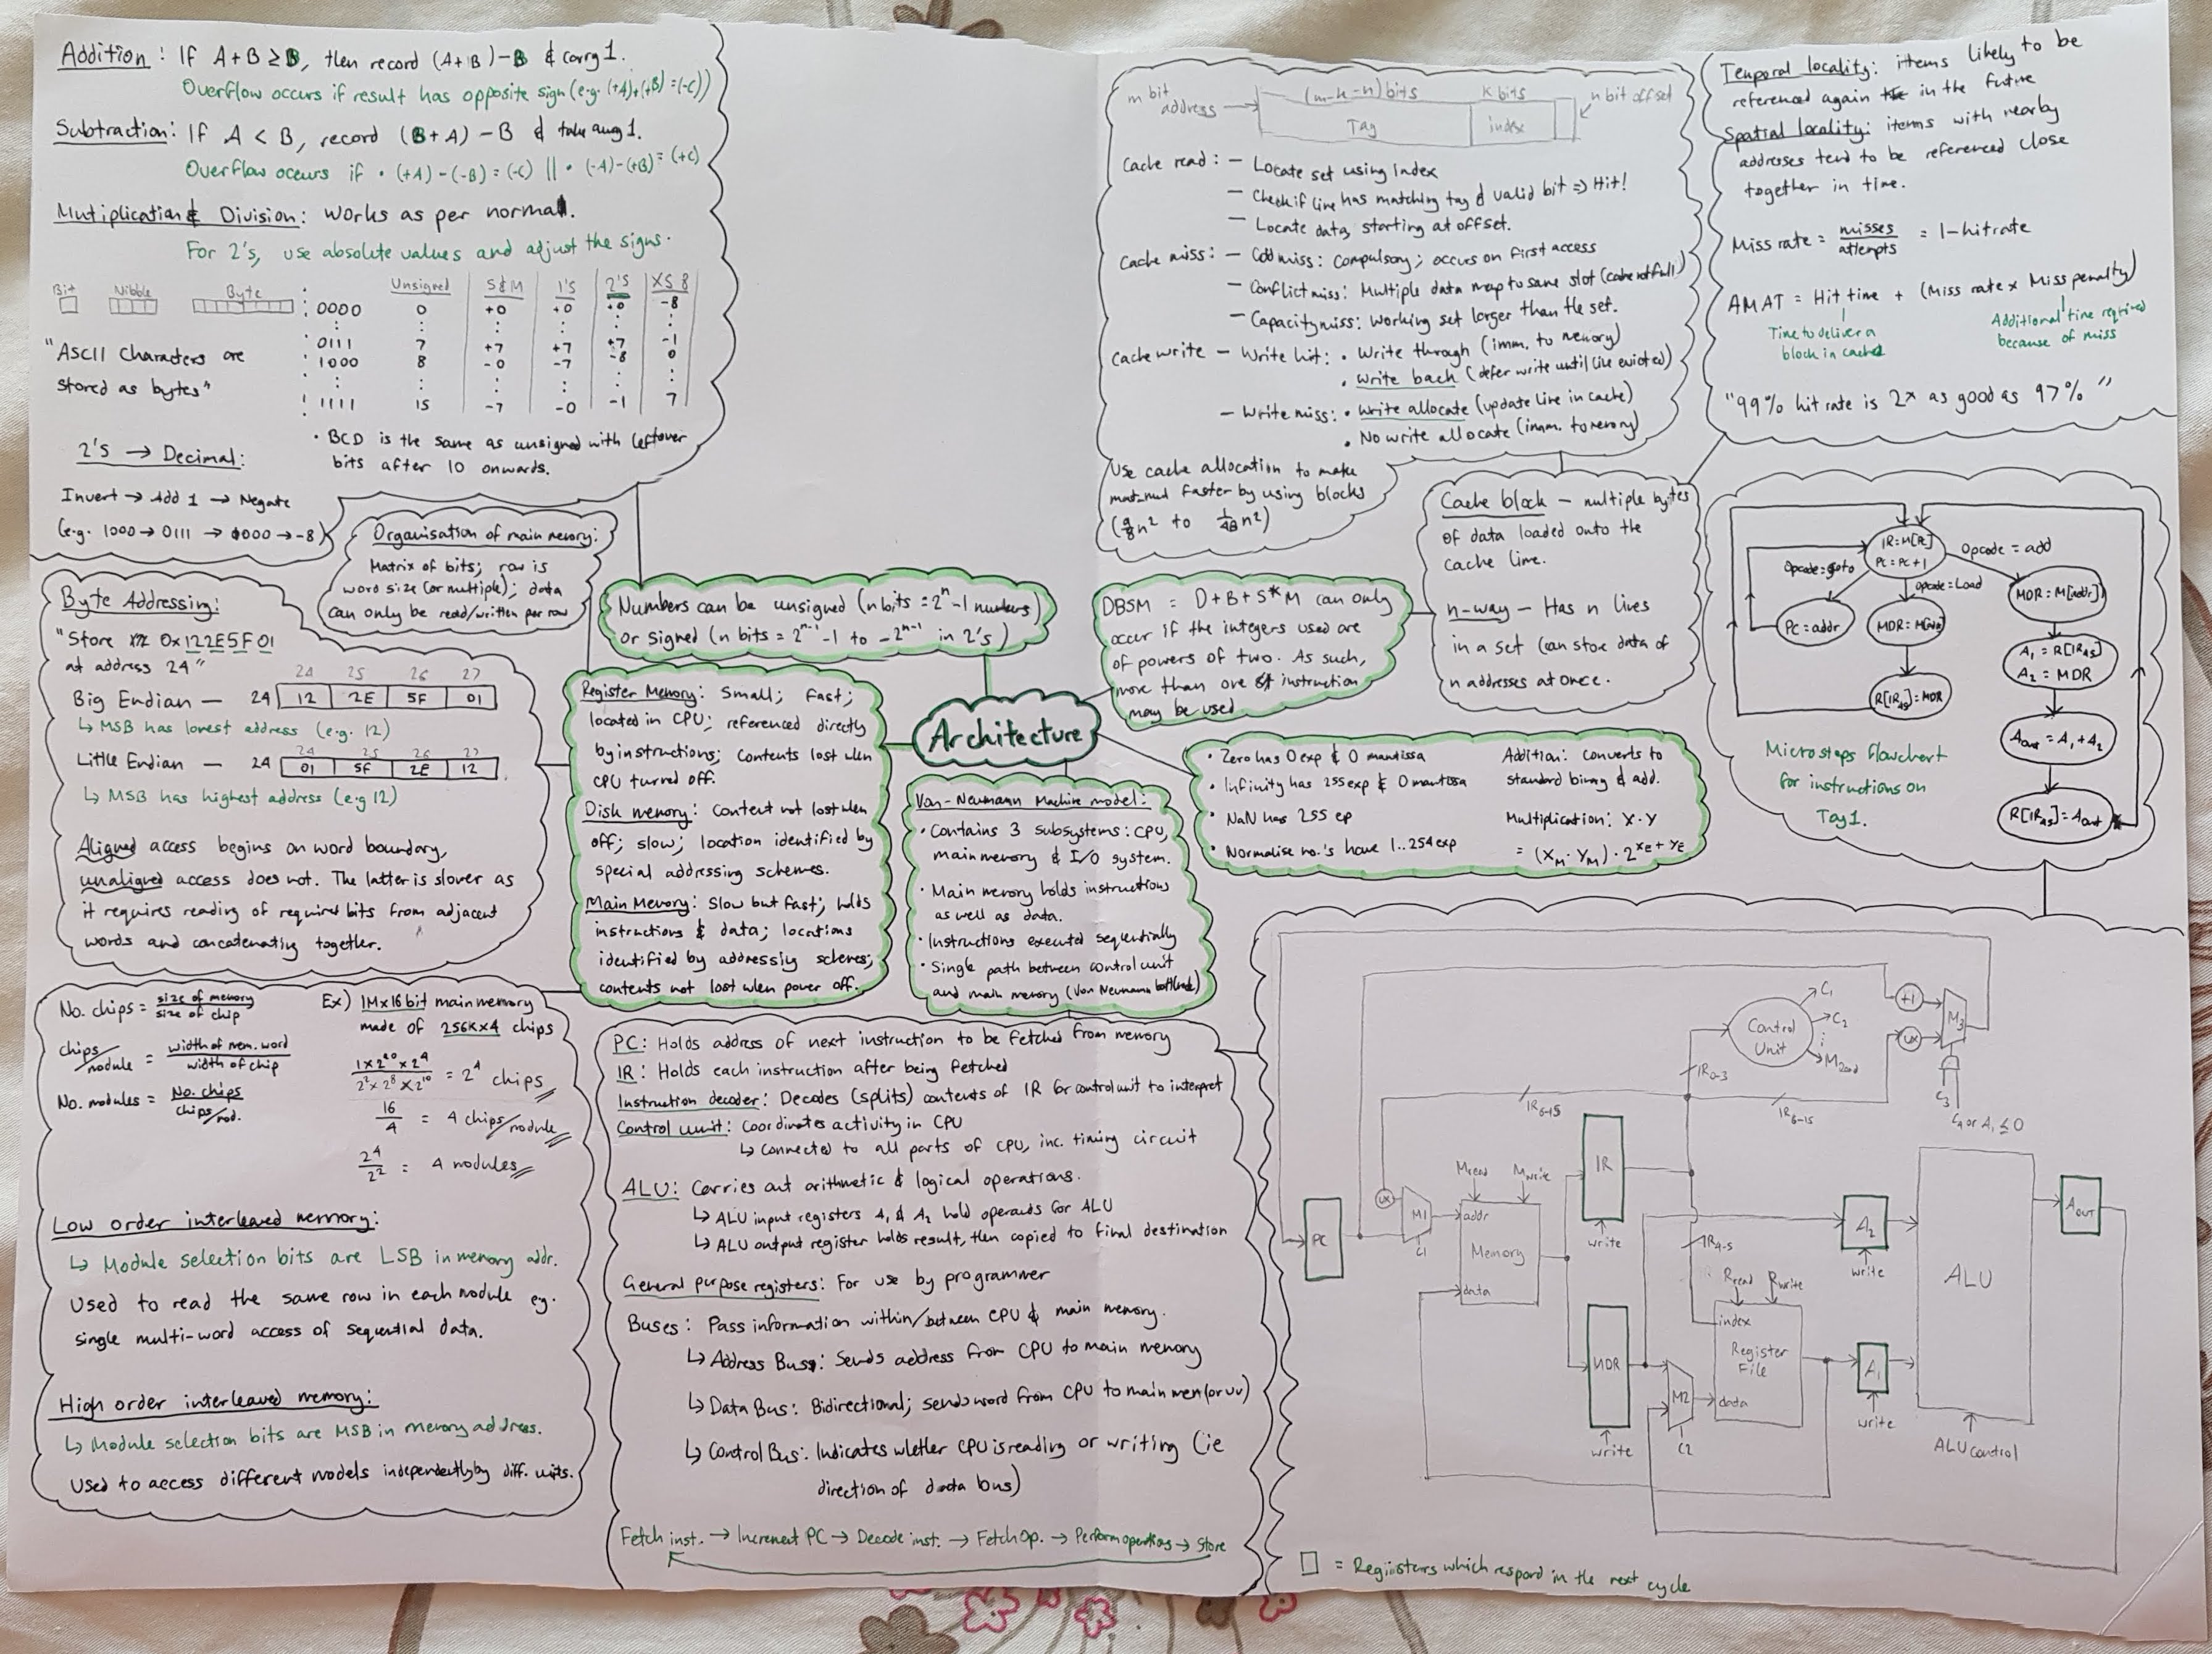 Addition: If A+B ≥ B, then record (A+B)-B & carry 1.
Overflow occurs if result has opposite sign (e.g. (+A)+(+B)=(-C))
Subtraction: If A < B, record (B+A) - B & take away 1.
Overflow occurs if • (+A)-(-B)=(-C) || • (-A)-(+B)=(+C)
Mutiplication & Division: Works as per normal.
For 2's, use absolute values and adjust the signs.
Bit Nibble Byte
Unsigned S&M 1's 2's XS 8
0000 0 +0 +0 +0 -8
: : : : : :
0111 7 +7 +7 +7 -1
1000 8 -0 -7 -8 0
: : : : : :
1111 15 -7 -0 -1 7
"ASCII Characters are
stored as bytes"
• BCD is the same as unsigned with leftover
bits after 10 onwards.
2's → Decimal:
Invert → Add 1 → Negate
(e.g. 1000 → 0111 → 1000 → -8)
Organisation of main memory:
Matrix of bits; row is
word size (or multiple); data
can only be read/written per row
Byte Addressing:
"Store 0x122E5F01
at address 24"
24 25 26 27
Big Endian — 24 12 2E 5F 01
↳ MSB has lowest address (e.g. 12)
24 25 26 27
Little Endian — 24 01 5F 2E 12
↳ MSB has highest address (e.g 12)
Aligned access begins on word boundary,
unaligned access does not. The latter is slower as
it requires reading of required bits from adjacent
words and concatenating together.
No. chips = size of memory / size of chip
chips/module = width of mem. word / width of chip
No. modules = No. chips / chips/mod.
Ex) 1M x 16 bit main memory
made of 256K x 4 chips
1 x 2^20 x 2^4 / 2^2 x 2^8 x 2^10 = 2^4 chips
16/4 = 4 chips/module
2^4/2^2 = 4 modules
Low order interleaved memory:
↳ Module selection bits are LSB in memory addr.
Used to read the same row in each module eg.
single multi-word access of sequential data.
High order interleaved memory:
↳ Module selection bits are MSB in memory address.
Used to access different models independently by diff. units.
Numbers can be unsigned (n bits = 2^n - 1 numbers)
or signed (n bits = 2^n-1 - 1 to -2^n-1 in 2's)
Register Memory: Small; fast;
located in CPU; referenced directly
by instructions; contents lost when
CPU turned off.
Disk memory: Content not lost when
off; slow; location identified by
special addressing schemes.
Main Memory: Slow but fast; holds
instructions & data; locations
identified by addressing schemes;
contents not lost when power off.
Architecture
Von-Neumann Machine model:
• Contains 3 subsystems: CPU,
main memory & I/O system.
• Main memory holds instructions
as well as data.
• Instructions executed sequentially
• Single path between control unit
and main memory (Von Neumann bottleneck)
PC: Holds address of next instruction to be fetched from memory
IR: Holds each instruction after being fetched
Instruction decoder: Decodes (splits) contents of IR for control unit to interpret
Control unit: Coordinates activity in CPU
↳ Connected to all parts of CPU, inc. timing circuit
ALU: Carries out arithmetic & logical operations.
↳ ALU input registers A1 & A2 hold operands for ALU
↳ ALU output register holds result, then copied to final destination
General purpose registers: For use by programmer
Buses: Pass information within/between CPU & main memory.
↳ Address Bus: Sends address from CPU to main memory
↳ Data Bus: Bidirectional; sends word from CPU to main mem (or vv)
↳ Control Bus: Indicates whether CPU is reading or writing (ie
direction of data bus)
Fetch inst. → Increment PC → Decode inst. → Fetch Op. → Perform operations → Store
m bit address (m-k-n) bits k bits n bit offset
Tag index
Cache read: — Locate set using Index
— Check if line has matching tag & valid bit ⇒ Hit!
— Locate data, starting at offset.
Cache miss: — Cold miss: Compulsory; occurs on first access
— Conflict miss: Multiple data map to same slot (cache not full)
— Capacity miss: Working set larger than the set.
Cache write — Write hit: • Write through (imm. to memory)
• Write back (defer write until line evicted)
— Write miss: • Write allocate (update line in cache)
• No write allocate (imm. to memory)
Use cache allocation to make
mat.mul faster by using blocks
(9/8 n² to 1/4B n²)
Cache block — multiple bytes
of data loaded onto the
cache line.
n-way — Has n lines
in a set (can store data of
n addresses at once.
DBSM = D+B+S*M can only
occur if the integers used are
of powers of two. As such,
more than one instruction
may be used
• Zero has 0 exp & 0 mantissa
• Infinity has 255 exp & 0 mantissa
• NaN has 255 ep
• Normalise no.'s have 1..254 exp
Addition: Converts to
standard binary & add.
Multiplication: X·Y
= (XM·YM)·2^XE+YE
Temporal locality: items likely to be
referenced again in the future
Spatial locality: items with nearby
addresses tend to be referenced close
together in time.
Miss rate = misses / attempts = 1-hitrate
AMAT = Hit time + (Miss rate x Miss penalty)
Time to deliver a
block in cache
Additional time required
because of miss
"99% hit rate is 2x as good as 97%"
IR=M[PC]
PC=PC+1
Opcode=goto
Opcode=Load
Opcode = add
PC=addr
MDR=M[addr]
R[IR45]=MDR
MDR=M[addr]
A1=R[IR45]
A2=MDR
Aout=A1+A2
R[IR45]=Aout
Microsteps flowchart
for instructions on
Toy1.
Control Unit
C1
C2
+1
UX
M3
C3
C4 or A1 ≤ 0
IR0-3
IR6-15
IR6-15
PC
UX
M1
C1
Mread
Mwrite
addr
Memory
data
IR
write
IR4-5
MDR
write
M2
C2
Rread
Rwrite
index
Register
File
data
A2
write
A1
write
ALU
ALU control
AOUT
= Registers which respond in the next cycle